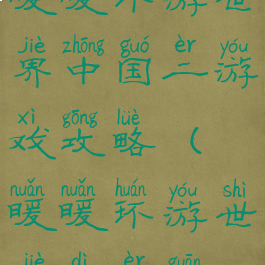 暖暖环游世
jiè zhōng guó èr yóu
界中国二游
xì gōng lüè
戏攻略(
nuǎn nuǎn huán yóu shì
暖暖环游世
jiè dì èr guān